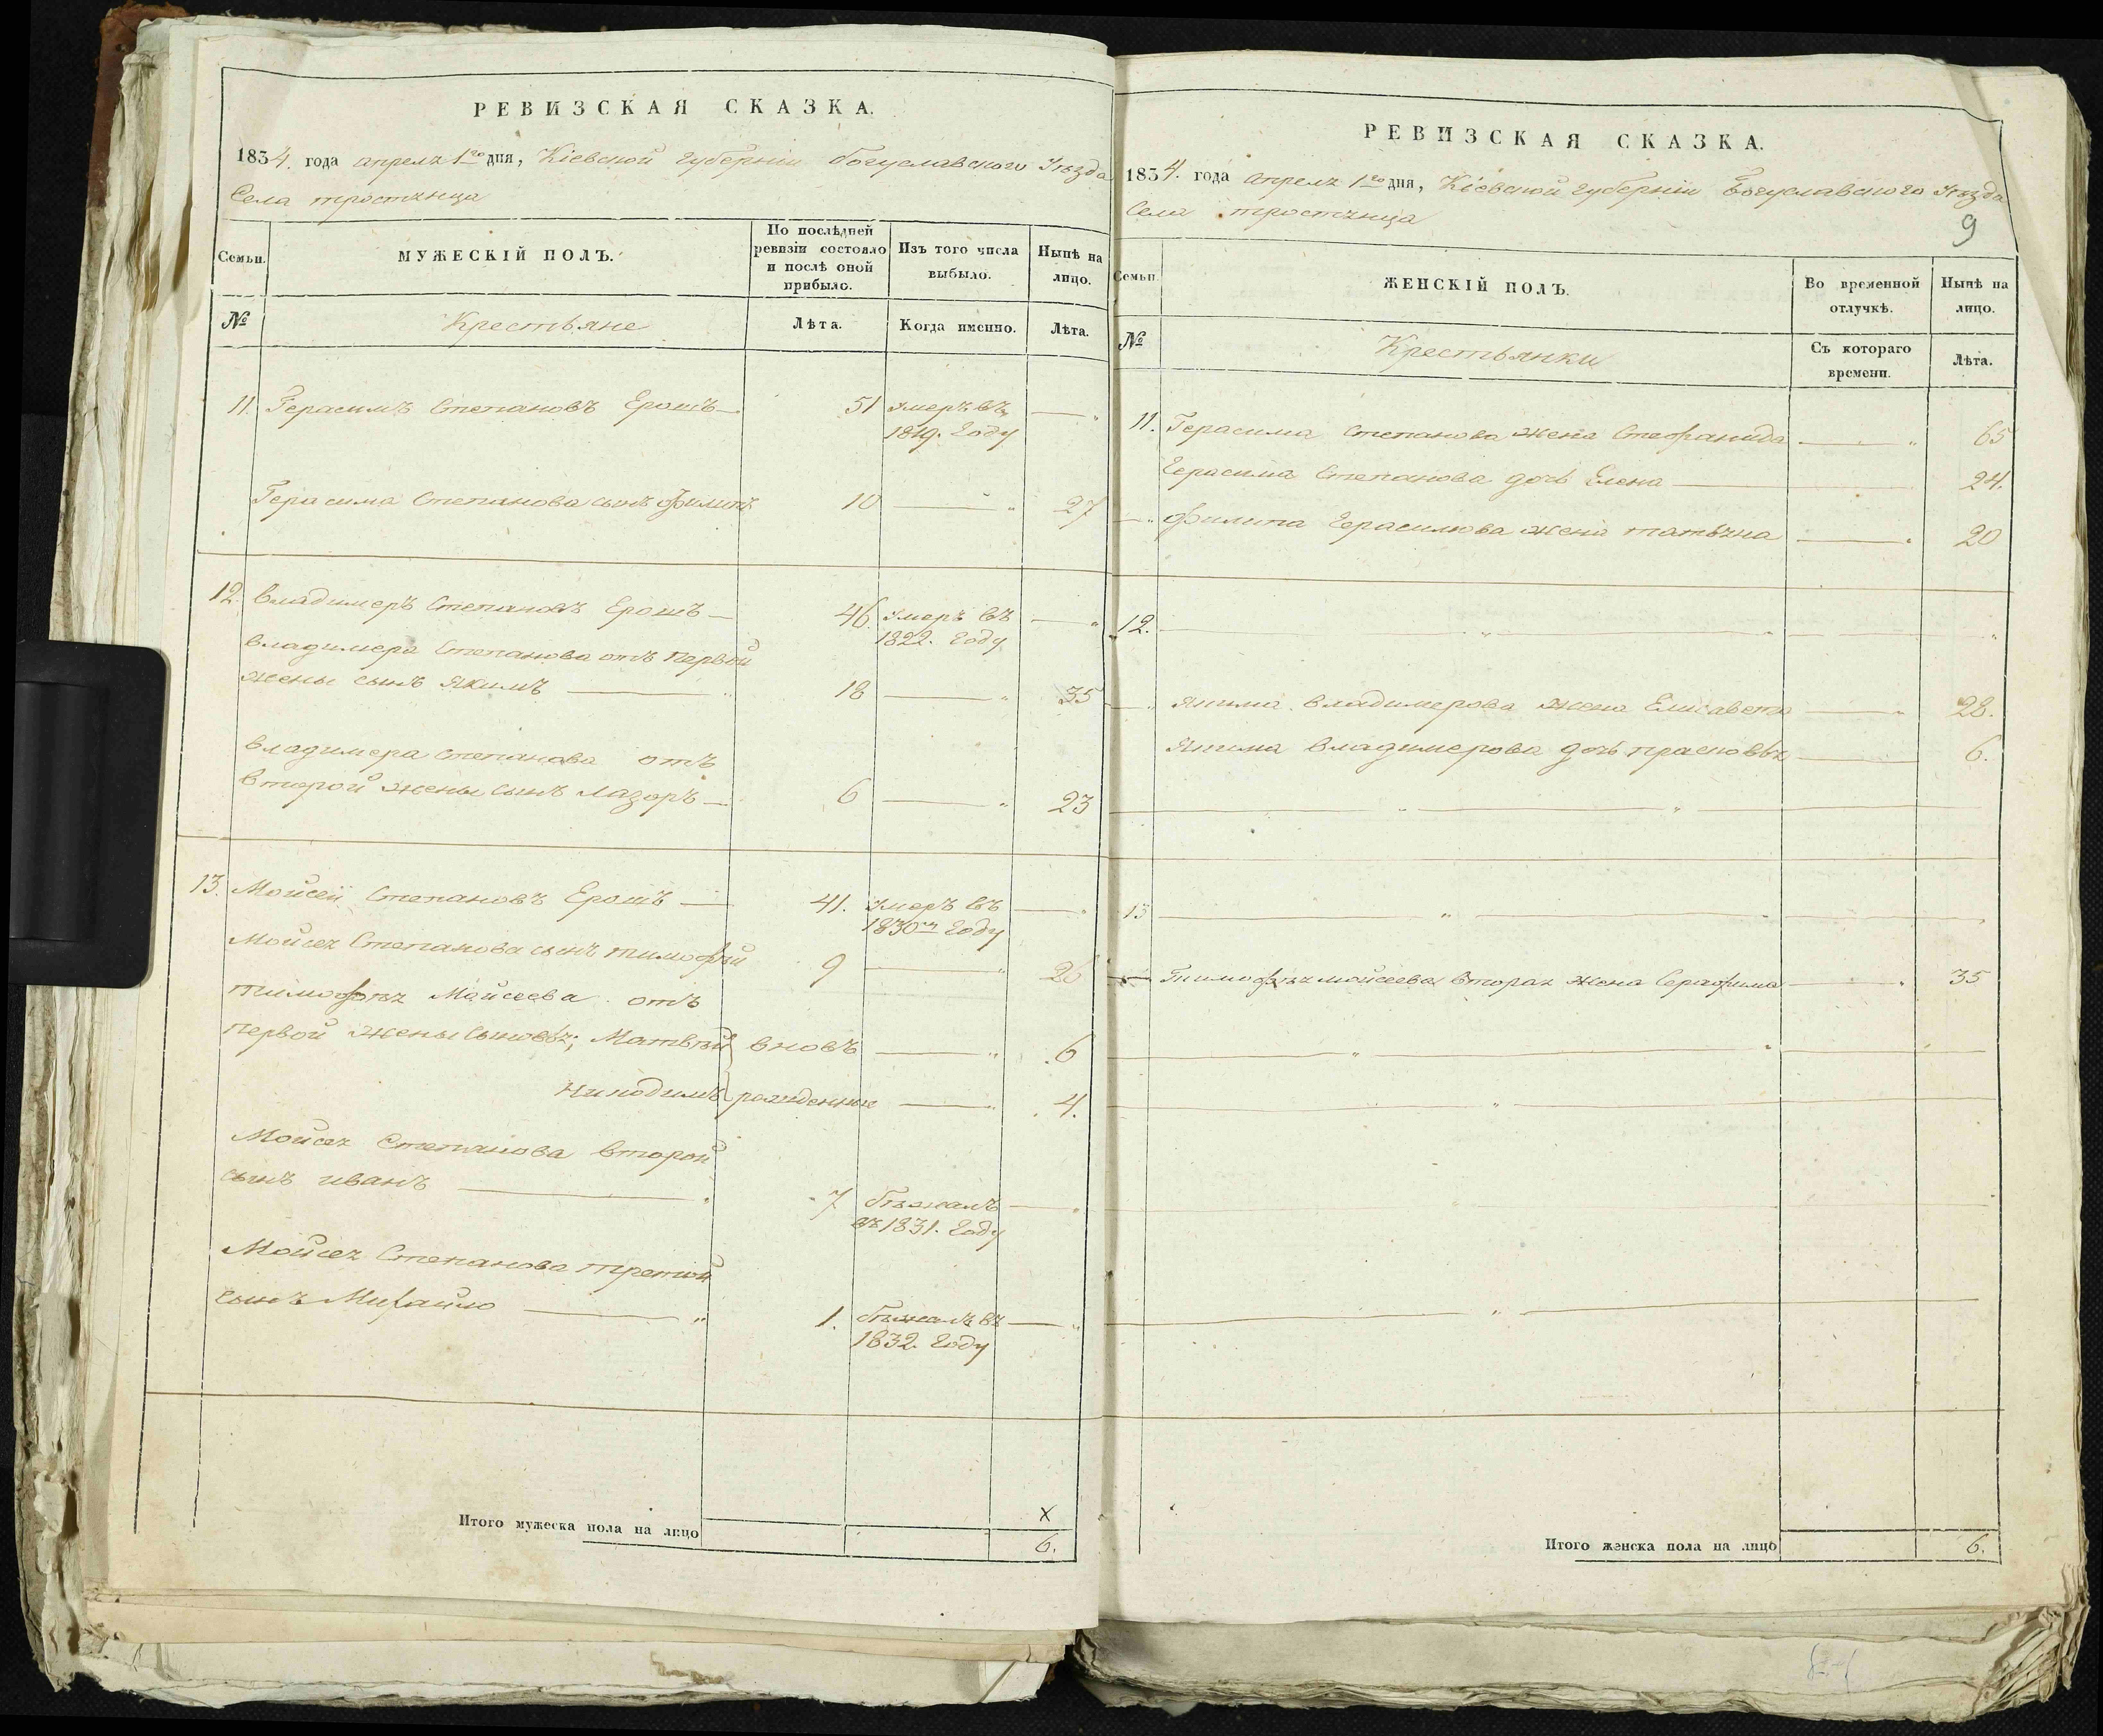 РЕВИЗСКАЯ СКАЗКА.
1834. года апреля 1го дня, Кіевской губерніи богуславского Уѣзда
Села тростянца
Семьи.
МУЖЕСКІЙ ПОЛЪ.
По послѣдней ревизіи состояло и послѣ оной прибыло.
Изъ того числа выбыло.
Нынѣ на лицо.
№
Крестьяне
Лѣта.
Когда именно.
Лѣта.
11. Герасимъ Степановъ Ерошъ — 51 умеръ въ — „
1819. году
Герасима Степанова сынъ филипъ 10 — „ 27
12. Владимеръ Степановъ Ерошъ — 46 умеръ въ — „
1822. году
Владимера Степанова отъ Первой
жены сынъ Якимъ — „ 18 — „ 35
Владимера Степанова отъ
второй жены сынъ Лазоръ — 6 — „ 23
13. Мойсей Степановъ Ерошъ — 41. умеръ въ — „
1830м году
Мойсея Степанова сынъ тимофѣй 9 — „ 26
тимофѣя Мойсеева отъ
первой жены сыновья; Матвѣй вновь — „ 6
Никодимъ рожденные — „ 4.
Мойсея Степанова второй
сынъ иванъ — „ 7 бѣжалъ — „
въ 1831. году
Мойсея Степанова третий
сынъ Михайло — „ 1. бѣжалъ въ — „
1832. году
х
Итого мужеска пола на лицо 6.
РЕВИЗСКАЯ СКАЗКА.
1834. года апреля 1го дня, Кіевской губерніи Богуславского уѣзда
Села тростянца
9
Семьи.
ЖЕНСКІЙ ПОЛЪ.
Во временной отлучкѣ.
Нынѣ на лицо.
№
Крестьянки
Съ котораго времени.
Лѣта.
11. Герасима Степанова жена Стефанида — „ 65
Герасима Степанова дочь Елена — 24.
— „ филипа Герасимова жена татьяна — „ 20
12. — „ — „ — „
— „ Якима владимерова жена Елисавета — „ 28.
Якима владимерова дочь прасковья — 6.
— „ — „ —
13 — „ — „ — „
— Тимофѣя мойсеева вторая жена Серафима — „ 35
— „ — „ —
— „ —
— „ —
— „ —
Итого женска пола на лицо 6.